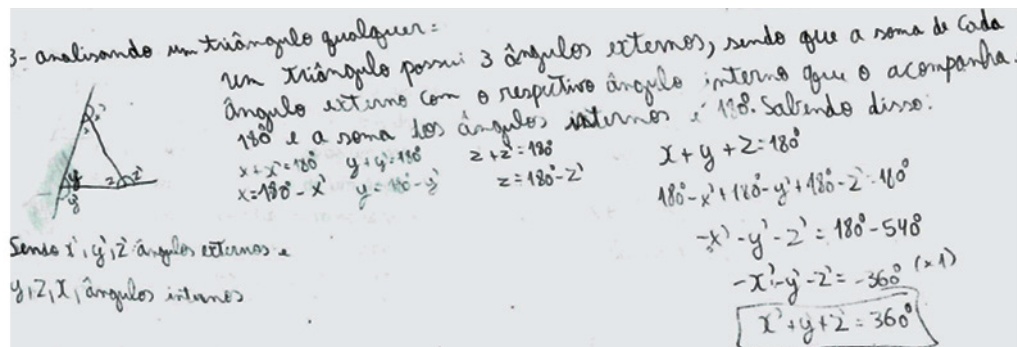 3- analisando um triângulo qualquer:
um triângulo possui 3 ângulos externos, sendo que a soma de cada
ângulo externo com o respectivo ângulo interno que o acompanha.
180° e a soma dos ângulos internos é 180°. Sabendo disso:
x+x'=180° y+y'=180 z+z'=180
x=180°-x' y=180°-y' z=180°-z'
x+y+z=180°
180°-x'+180°-y'+180°-z'=180°
-x'-y'-z'=180°-540°
-x'-y'-z'=-360° (x1)
x'+y+z=360°
x'
x
y
y'
z z'
Senso x', y', z' ângulos externos e
y, z, x, ângulos internos